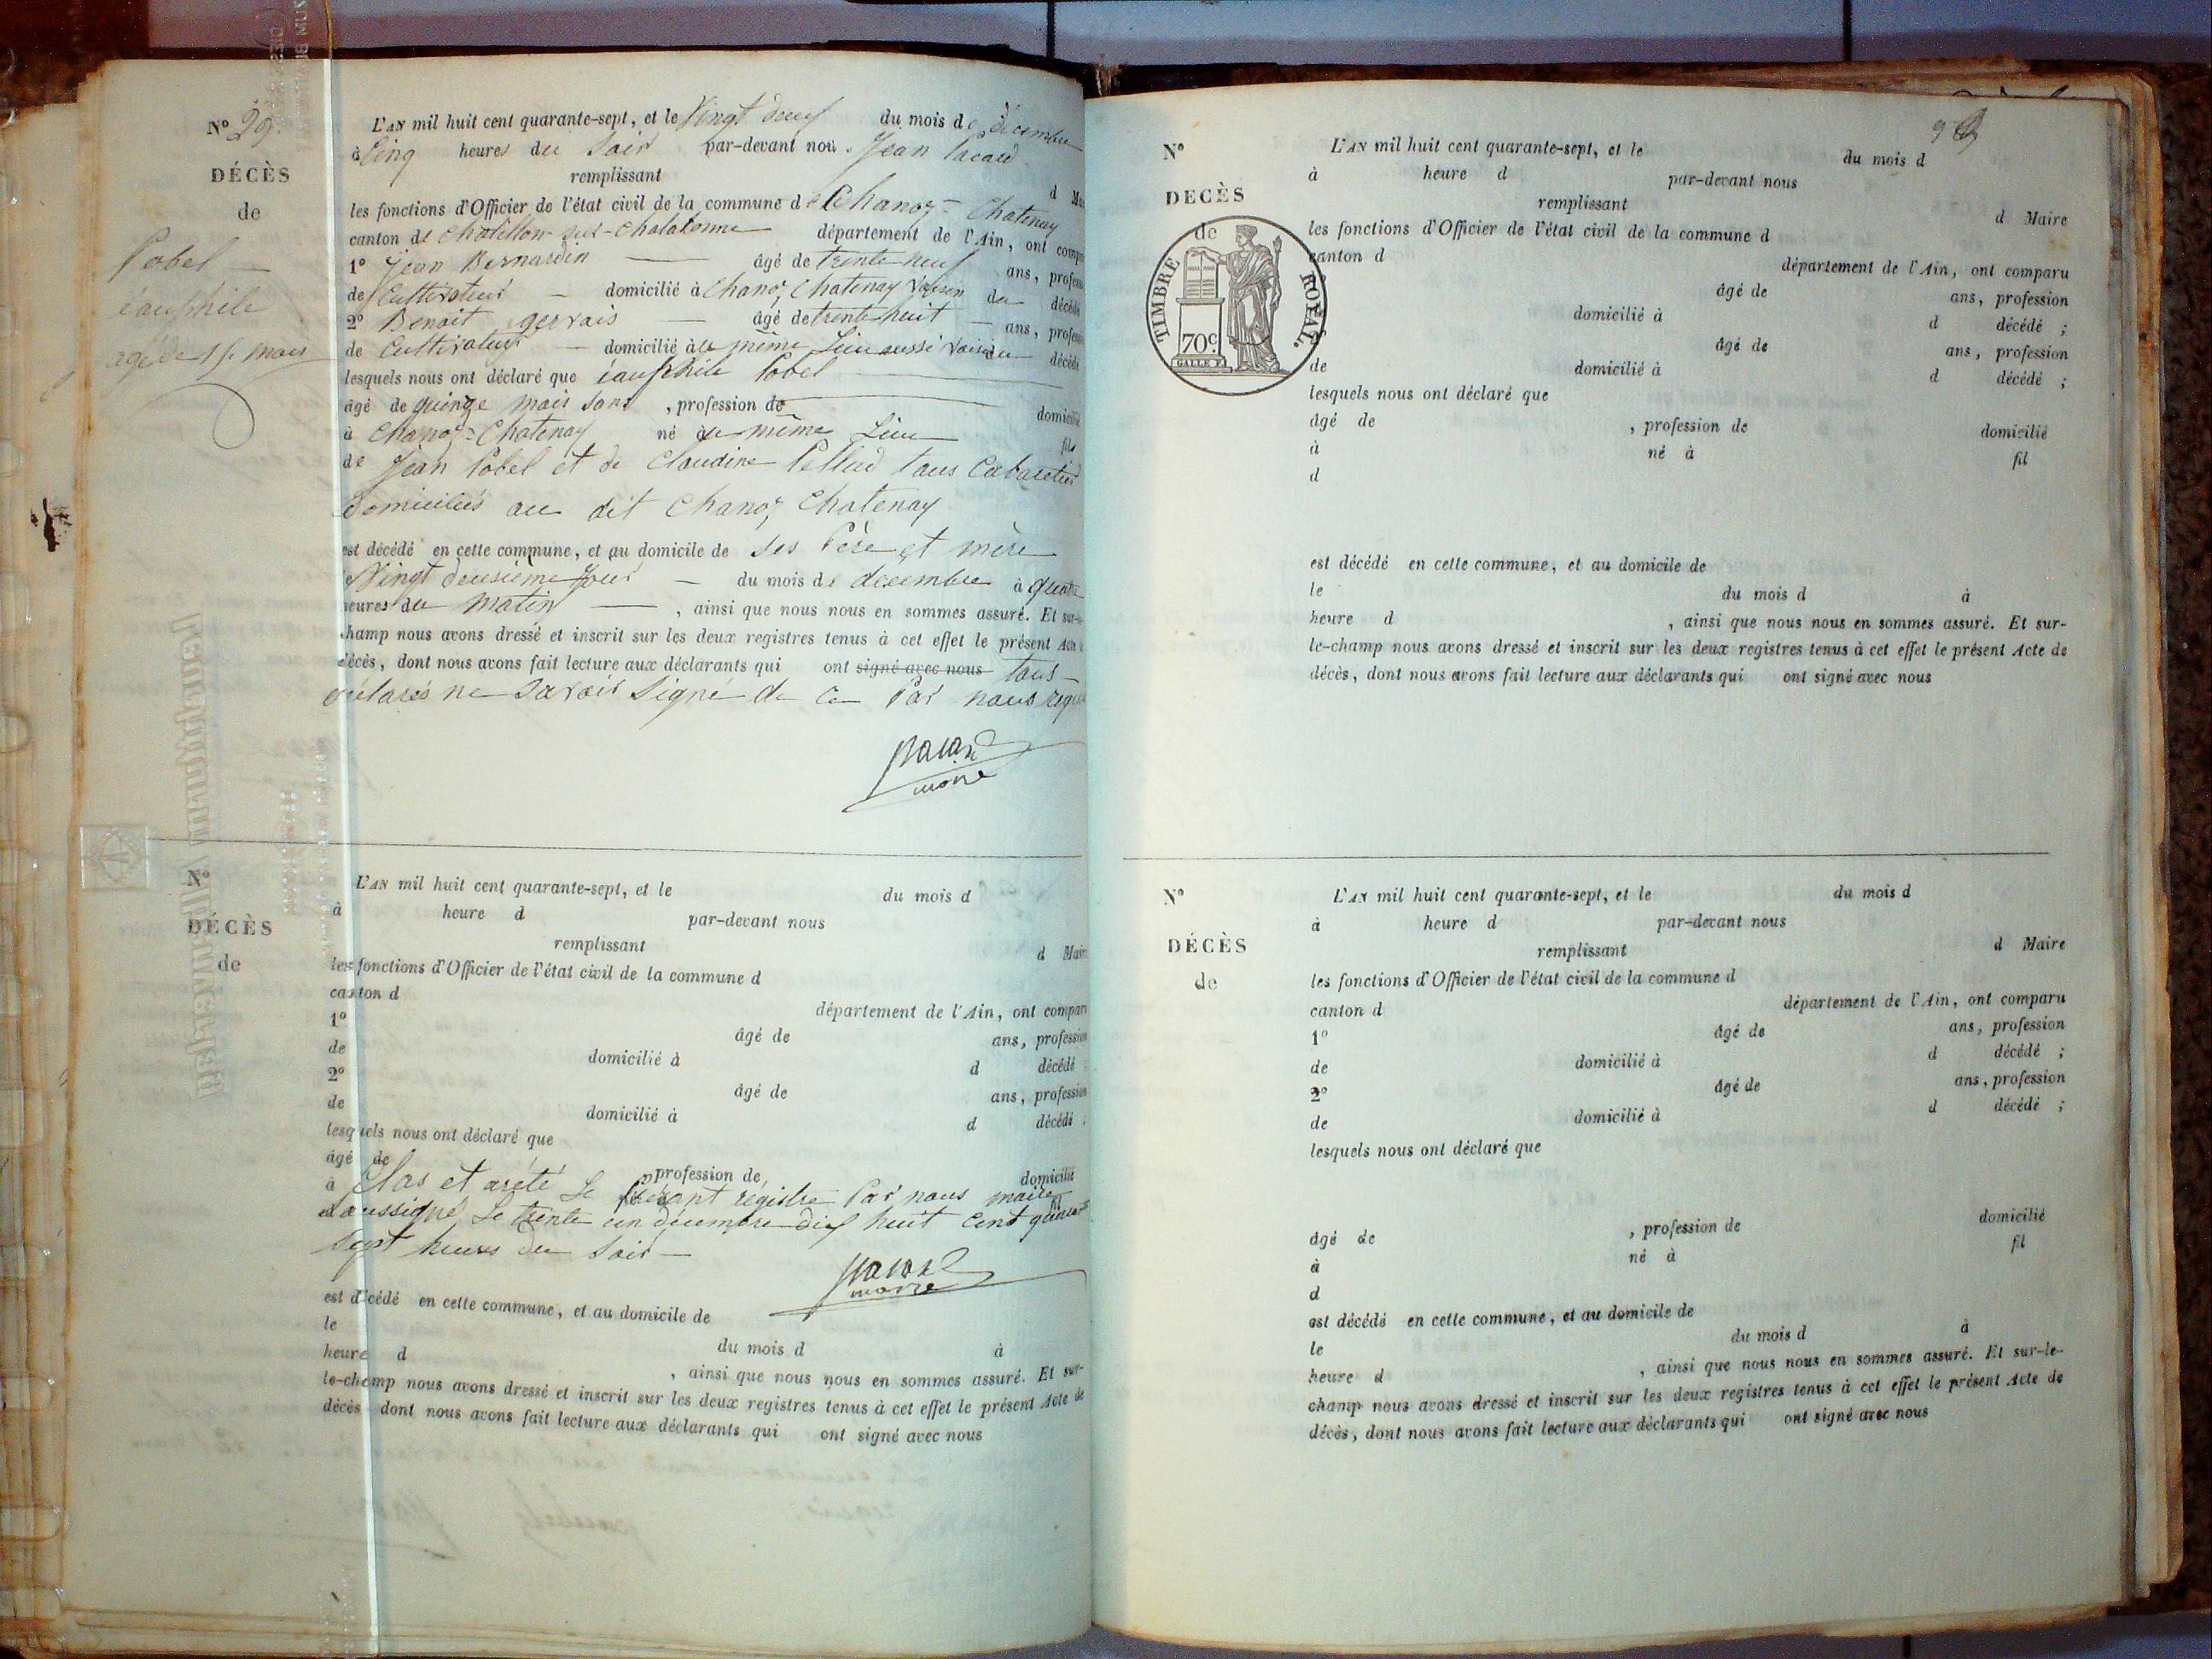 N° 29.
DÉCÈS
de
Pobel
éauphile
agé de 15 mois
L'AN mil huit cent quarante-sept, et le Vingt deux du mois de décembre
à Cinq heures du Soir par-devant nous Jean Pacard
remplissant d Mai
les fonctions d'Officier de l'état civil de la commune de Chanoz-Chatenay
canton de Chatillon-sur-Chalaronne département de l'Ain, ont compa
1° Jean Bernardin âgé de trente neuf ans, profess
de Cultivateur domicilié à Chanoz Chatenay Voisin du décédé
2° Benoit gervais âgé de trente huit ans, profess
de Cultivateur domicilié à u même Lieu aussi Voisin du décédé
lesquels nous ont déclaré que éauphile Pobel
âgé de quinze mois sans , profession de domicilié
à Chanoz-Chatenay né au même Lieu fils
de Jean Pobel et de Claudine Pellud tous Cabaretier
domiciliés au dit Chanoz Chatenay
est décédé en cette commune, et au domicile de ses Père et mère
Vingt deusième Jour du mois de décembre à quatre
heures du matin , ainsi que nous nous en sommes assuré. Et sur-
champ nous avons dressé et inscrit sur les deux registres tenus à cet effet le présent Acte
décès, dont nous avons fait lecture aux déclarants qui ont signé avec nous tous
déclarés ne savoir signé de ce Par nous requis
Pacard
maire
N°
DÉCÈS
de
L'AN mil huit cent quarante-sept, et le du mois d
à heure d par-devant nous
remplissant d Maire
les fonctions d'Officier de l'état civil de la commune d
canton d département de l'Ain, ont comparu
1° âgé de ans, profession
de domicilié à d décédé ;
2° âgé de ans, profession
de domicilié à d décédé ;
lesquels nous ont déclaré que
âgé de , profession de domicilié
à Clos et arété Le présent registre Par nous maire
soussigné Le trente un décembre dix huit cent quarante
sept heures du Soir
Pacard
maire
est décédé en cette commune, et au domicile de
le du mois d à
heure d , ainsi que nous nous en sommes assuré. Et sur-
le-champ nous avons dressé et inscrit sur les deux registres tenus à cet effet le présent Acte de
décès dont nous avons fait lecture aux déclarants qui ont signé avec nous
9
N°
DECÈS
de
TIMBRE ROYAL.
70c.
L'AN mil huit cent quarante-sept, et le du mois d
à heure d par-devant nous
remplissant d Maire
les fonctions d'Officier de l'état civil de la commune d
canton d département de l'Ain, ont comparu
âgé de ans, profession
domicilié à d décédé ;
âgé de ans, profession
de domicilié à d décédé ;
lesquels nous ont déclaré que
âgé de , profession de domicilié
à né à fil
d
est décédé en cette commune, et au domicile de
le du mois d à
heure d , ainsi que nous nous en sommes assuré. Et sur-
le-champ nous avons dressé et inscrit sur les deux registres tenus à cet effet le présent Acte de
décès, dont nous avons fait lecture aux déclarants qui ont signé avec nous
N°
DÉCÈS
de
L'AN mil huit cent quarante-sept, et le du mois d
à heure d par-devant nous
remplissant d Maire
les fonctions d'Officier de l'état civil de la commune d
canton d département de l'Ain, ont comparu
1° âgé de ans, profession
de domicilié à d décédé ;
2° âgé de ans, profession
de domicilié à d décédé ;
lesquels nous ont déclaré que
âgé de , profession de domicilié
à né à fil
d
est décédé en cette commune, et au domicile de
le du mois d à
heure d , ainsi que nous nous en sommes assuré. Et sur-le-
champ nous avons dressé et inscrit sur les deux registres tenus à cet effet le présent Acte de
décès, dont nous avons fait lecture aux déclarants qui ont signé avec nous